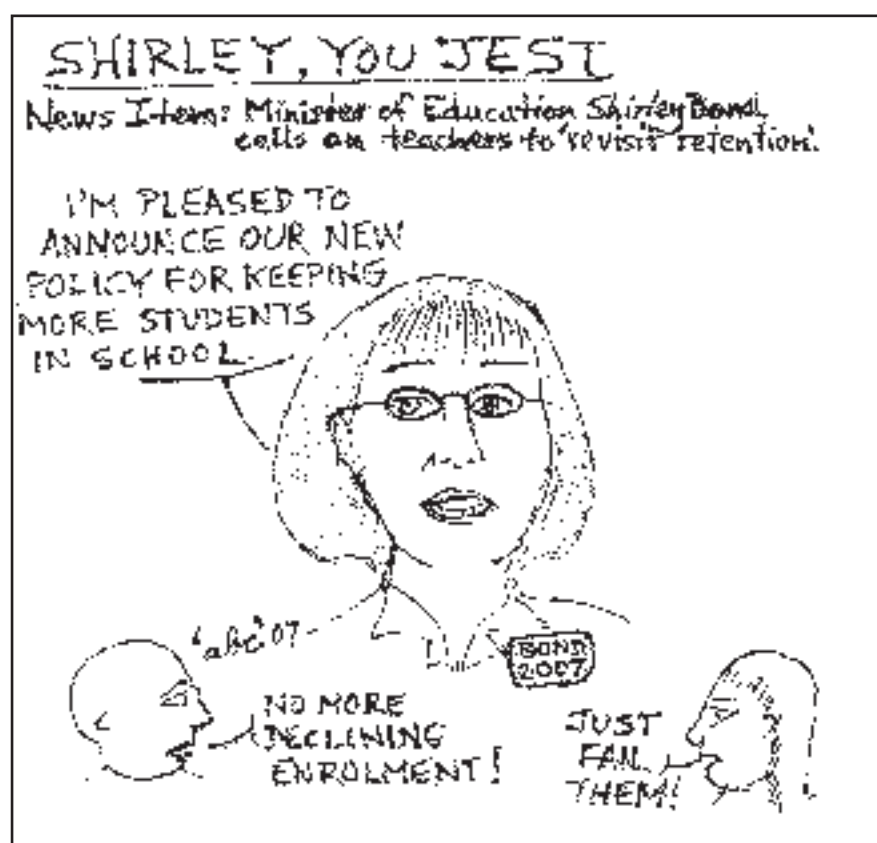 SHIRLEY, YOU JEST
News Item: Minister of Education Shirley Bond
calls on teachers to 'revisit retention'.
I'M PLEASED TO
ANNOUNCE OUR NEW
POLICY FOR KEEPING
MORE STUDENTS
IN SCHOOL.
'abc' 07
BOND
2007
NO MORE
DECLINING
ENROLMENT!
JUST
FAIL
THEM!